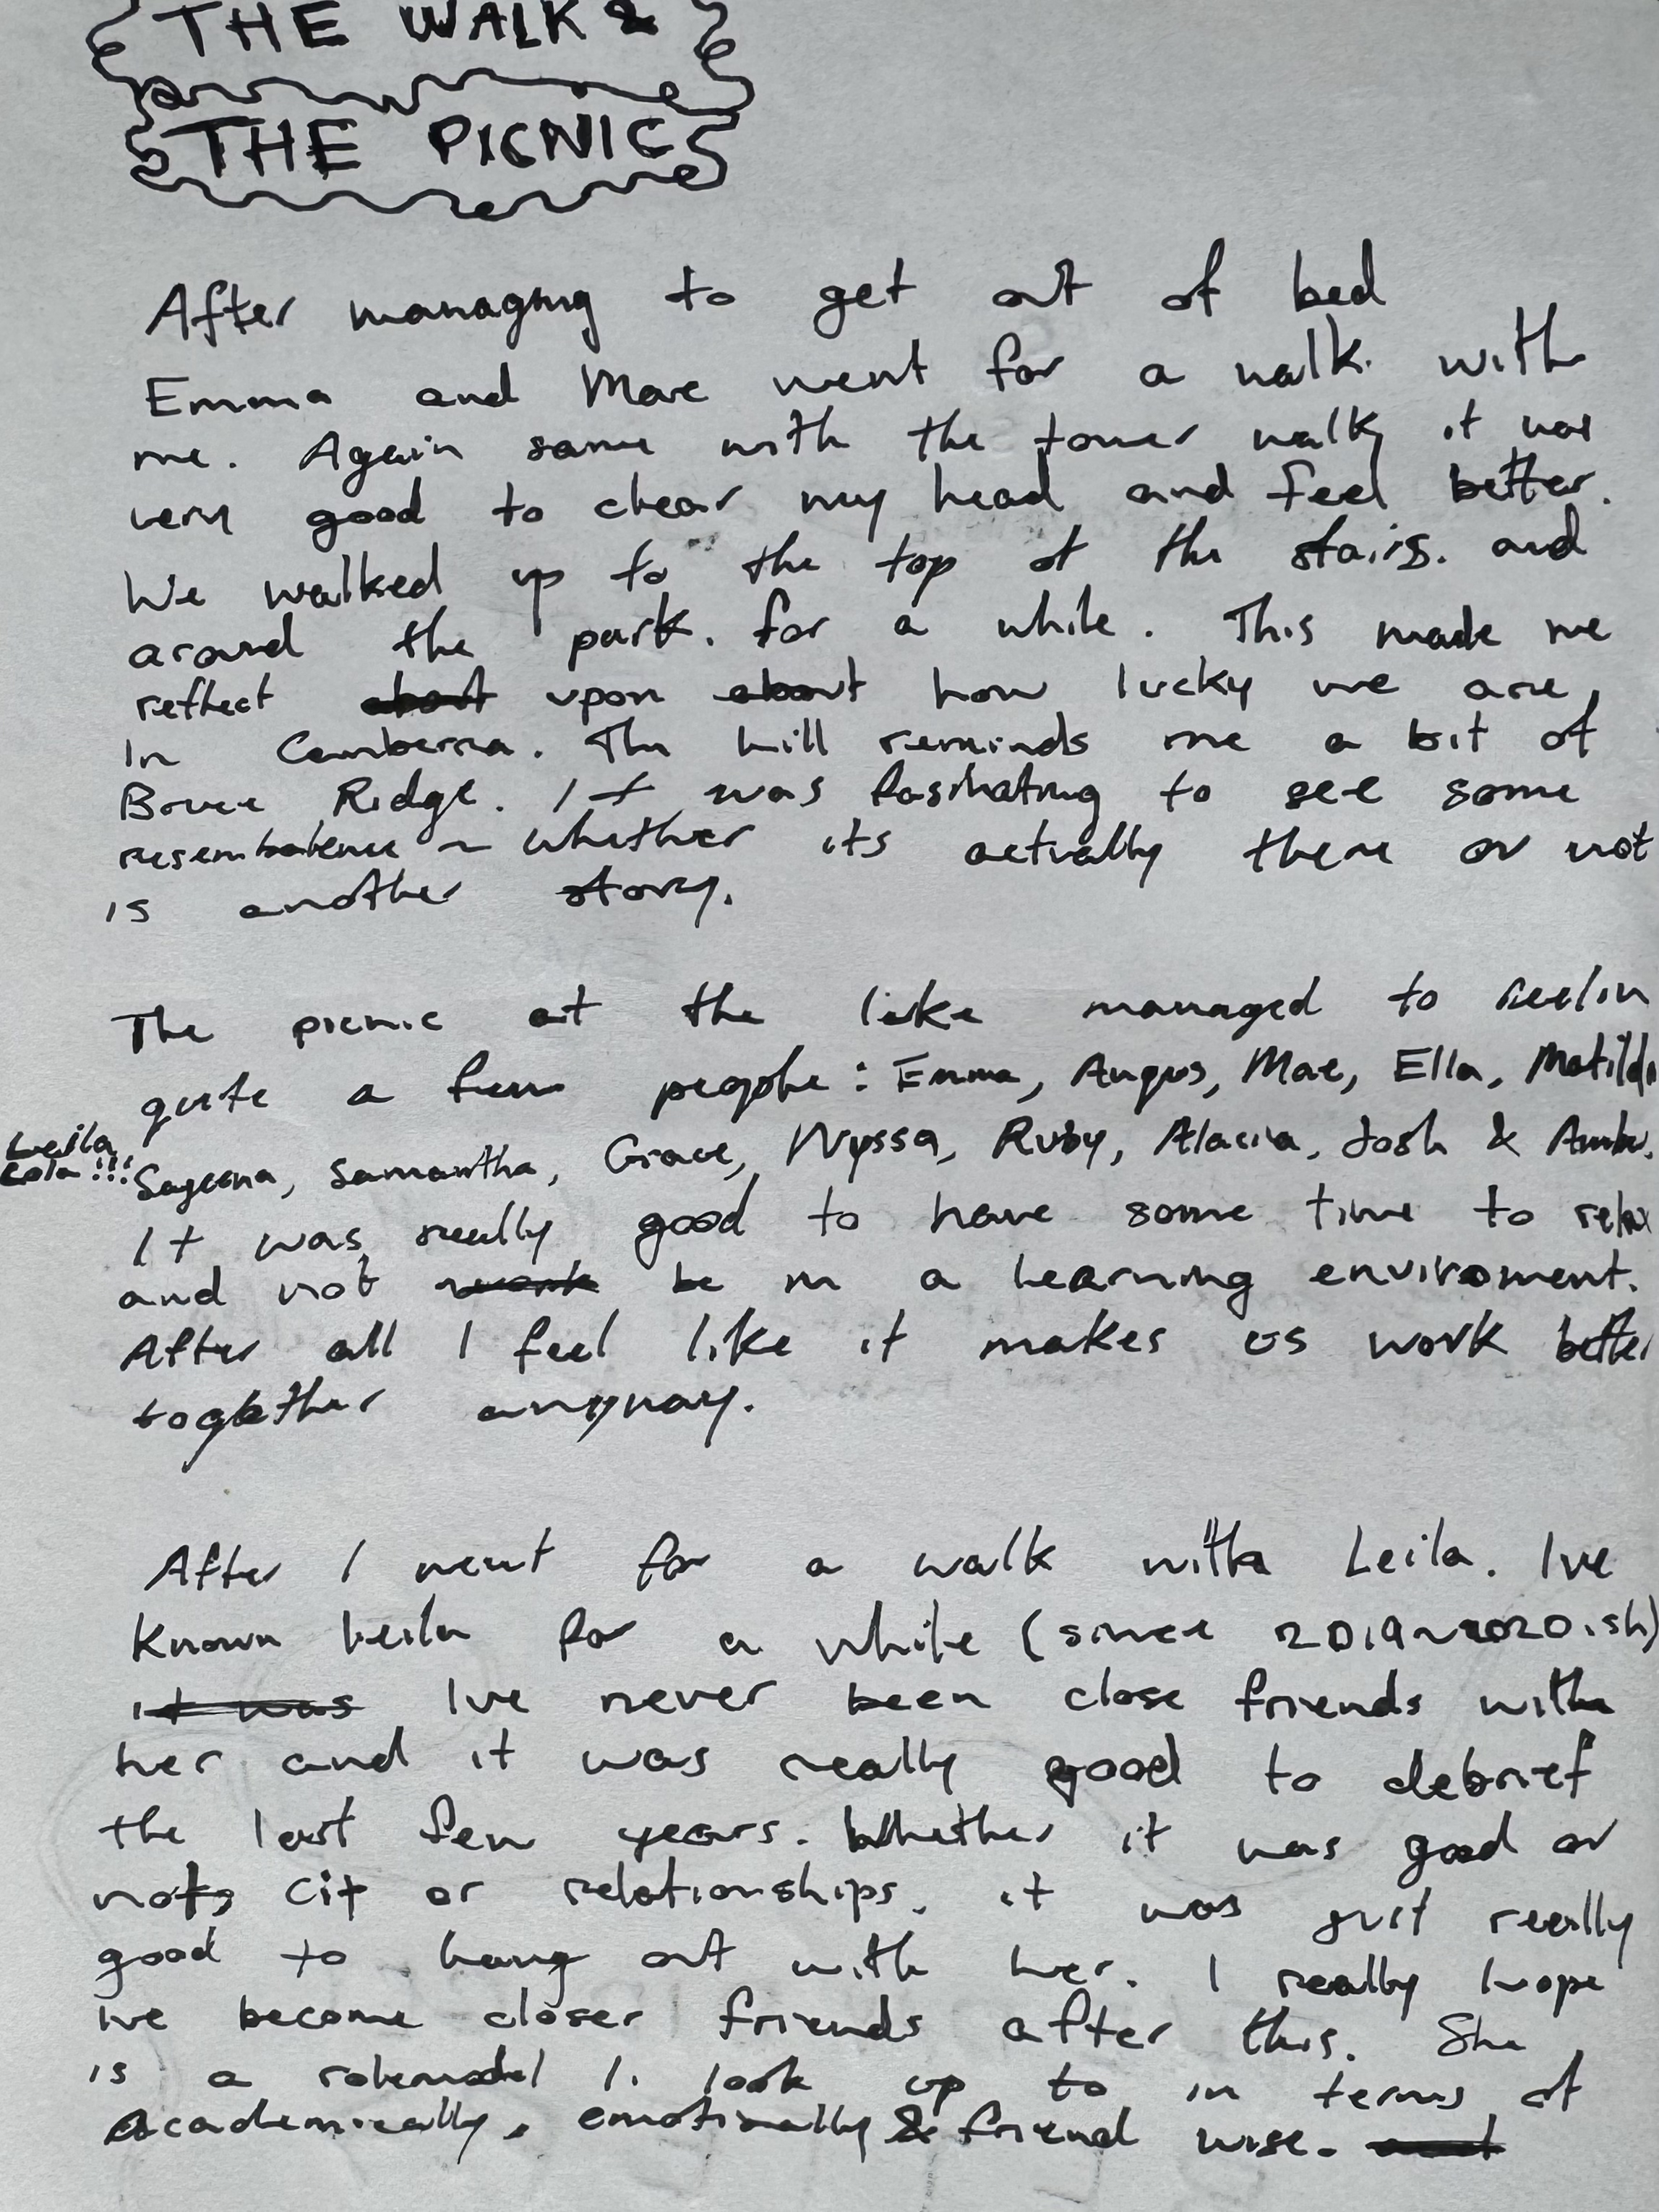 THE WALK &
THE PICNIC
After managing to get out of bed
Emma and Mae went for a walk with
me. Again same with the tower walk it was
very good to clear my head and feel better.
We walked up to the top of the stairs. and
around the park. for a while. This made me
reflect about upon about how lucky we are,
In Canberra. The hill reminds me a bit of
Bruce Ridge. It was fasinating to see some
~ whether its actually there or not
is another story.
The picnic at the lake managed to
quite a few people: Emma, Angus, Mae, Ella, Matilda
Leila
Lola!!!
Sageena, Samantha, Grace, Nyssa, Ruby, Alacia, Josh & Amber.
It was really good to have some time to relax
and not work be in a learning enviroment.
After all I feel like it makes us work better
together anyway.
After I went for a walk with Leila. Ive
known Leila for a while (since 2019~2020.ish)
it was Ive never been close friends with
her and it was really good to debrief
the last few years. Whether it was good or
not, cit or relationships. it was just really
good to hang out with her. I really hope
we become closer friends after this. She
is a rolemodel I. look up to in terms of
Academically, emotinally & friend wise.